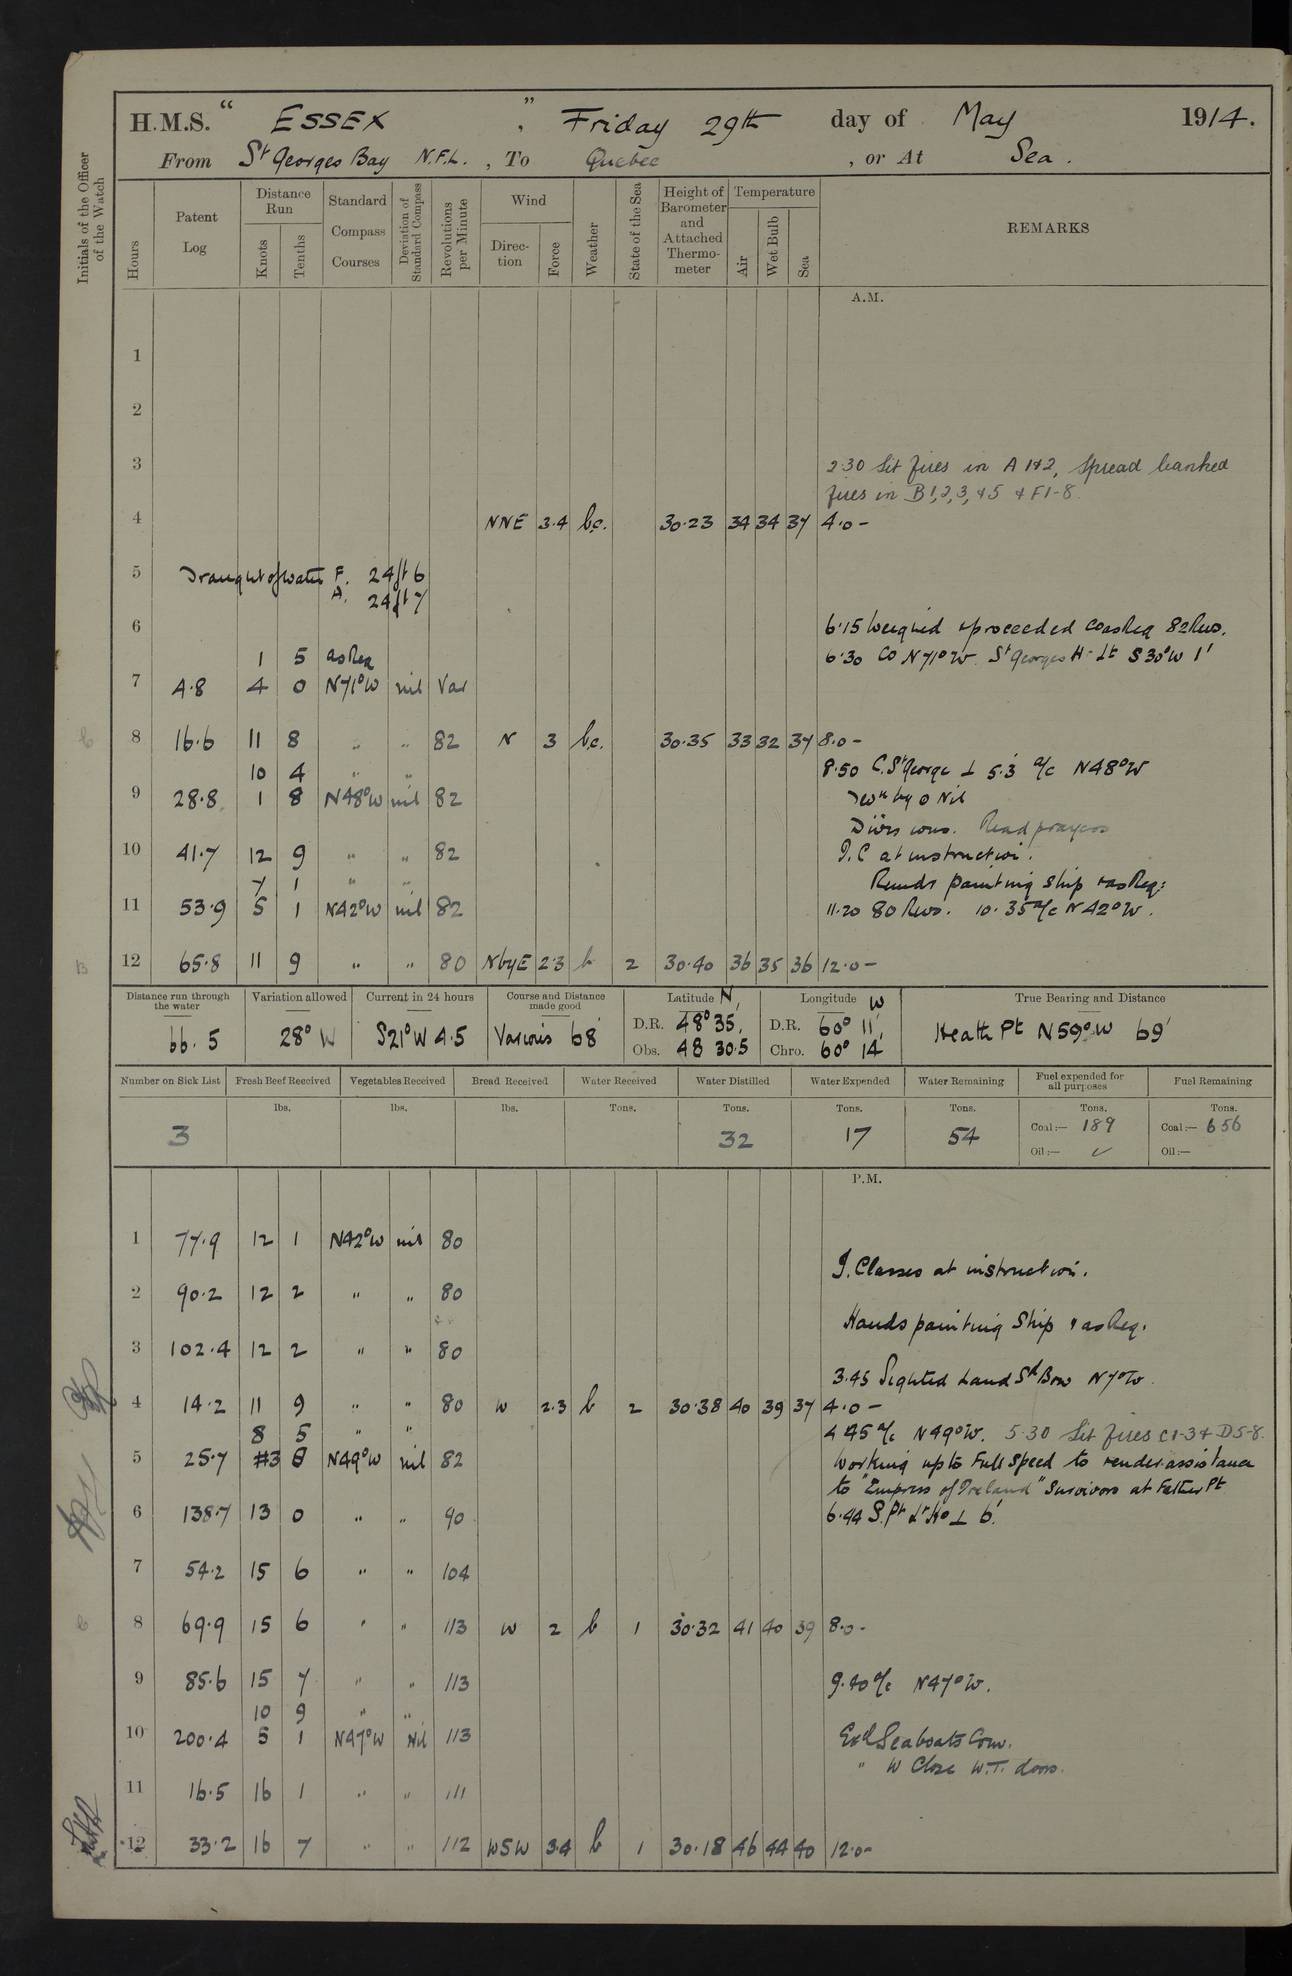 H.M.S. " ESSEX ", Friday 29th day of May 1914.
From St Georges Bay N.F.L. , To Quebec , or At Sea.
Initials of the Officer of the Watch
Hours
Patent Log
Distance Run
Knots
Tenths
Standard Compass Courses
Deviation of Standard Compass
Revolutions per Minute
Wind
Direction
Force
Weather
State of the Sea
Height of Barometer and Attached Thermometer
Temperature
Air
Wet Bulb
Sea
REMARKS
A.M.
1
2
3 2.30 Lit fires in A 1+2, Spread banked
fires in B 1, 2, 3, +5 + F 1-8.
4 NNE 3.4 b.c. 30.23 34 34 37 4.0 -
5 Draught of water F. 24 ft 6
A. 24 ft 7
6 6.15 Weighed + proceeded Co as Req 82 Revs.
1 5 as Req 6.30 Co N71°W St Georges Hr Lt S30°W 1'
7 4.8 4 0 N71°W nil Var
8 16.6 11 8 " " 82 N 3 b.c. 30.35 33 32 37 8.0 -
10 4 " " 8.50 C. St George ⊥ 5.3 a/c N48°W
9 28.8 1 8 N48°W nil 82 Devn by ☉ Nil
Divisions. Read prayers
10 41.7 12 9 " " 82 I.C at instruction.
7 1 " " Hands painting ship + as Req:
11 53.9 5 1 N42°W nil 82 11.20 80 Revs. 10.35 a/c N42°W.
12 65.8 11 9 " " 80 NbyE 2.3 b 2 30.40 36 35 36 12.0 -
Distance run through the water
66.5
Variation allowed
28° W
Current in 24 hours
S21°W 4.5
Course and Distance made good
Various 68'
Latitude N
D.R. 48° 35'
Obs. 48 30.5
Longitude W
D.R. 60° 11'
Chro. 60° 14'
True Bearing and Distance
Heath Pt N59°W 69'
Number on Sick List
3
Fresh Beef Received
lbs.
Vegetables Received
lbs.
Bread Received
lbs.
Water Received
Tons.
Water Distilled
Tons.
32
Water Expended
Tons.
17
Water Remaining
Tons.
54
Fuel expended for all purposes
Tons.
Coal:— 189
Oil:— ✓
Fuel Remaining
Tons.
Coal:— 656
Oil:—
P.M.
1 77.9 12 1 N42°W nil 80
I. Classes at instruction.
2 90.2 12 2 " " 80
Hands painting Ship + as Req.
3 102.4 12 2 " " 80
3.45 Sighted Land Sd Bow N7°W.
4 14.2 11 9 " " 80 W 2.3 b 2 30.38 40 39 37 4.0 -
8 5 " " 4.45 a/c N49°W. 5.30 Lit fires C1-3 + D5-8.
5 25.7 3 0 N49°W nil 82 Working up to Full Speed to render assistance
to "Empress of Ireland" Survivors at Father Pt
6 138.7 13 0 " " 90 6.44 S. Pt Lt Ho ⊥ 6'.
7 54.2 15 6 " " 104
8 69.9 15 6 " " 113 W 2 b 1 30.32 41 40 39 8.0 -
9 85.6 15 7 " " 113 9.40 a/c N47°W.
10 9 " "
10 200.4 5 1 N47°W Nil 113 Exd Seaboats Crew.
" W Close W.T. doors.
11 16.5 16 1 " " 111
12 33.2 16 7 " " 112 WSW 3.4 b 1 30.18 46 44 40 12.0 -